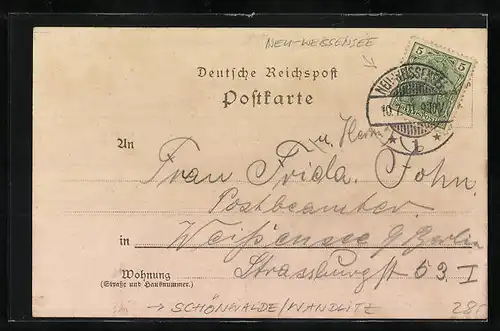 NEU-WEISSENSEE
Deutsche Reichspost
Postkarte
5 5
NEU-WEISSENSEE
10.7.01.
* b *
u. Herrn
An Frau Frida John.
Postbeamter
in Weißensee b/ Berlin
Strassburgst 53. I
Wohnung
(Straße und Hausnummer.)
→ SCHÖNWALDE/WANDLITZ